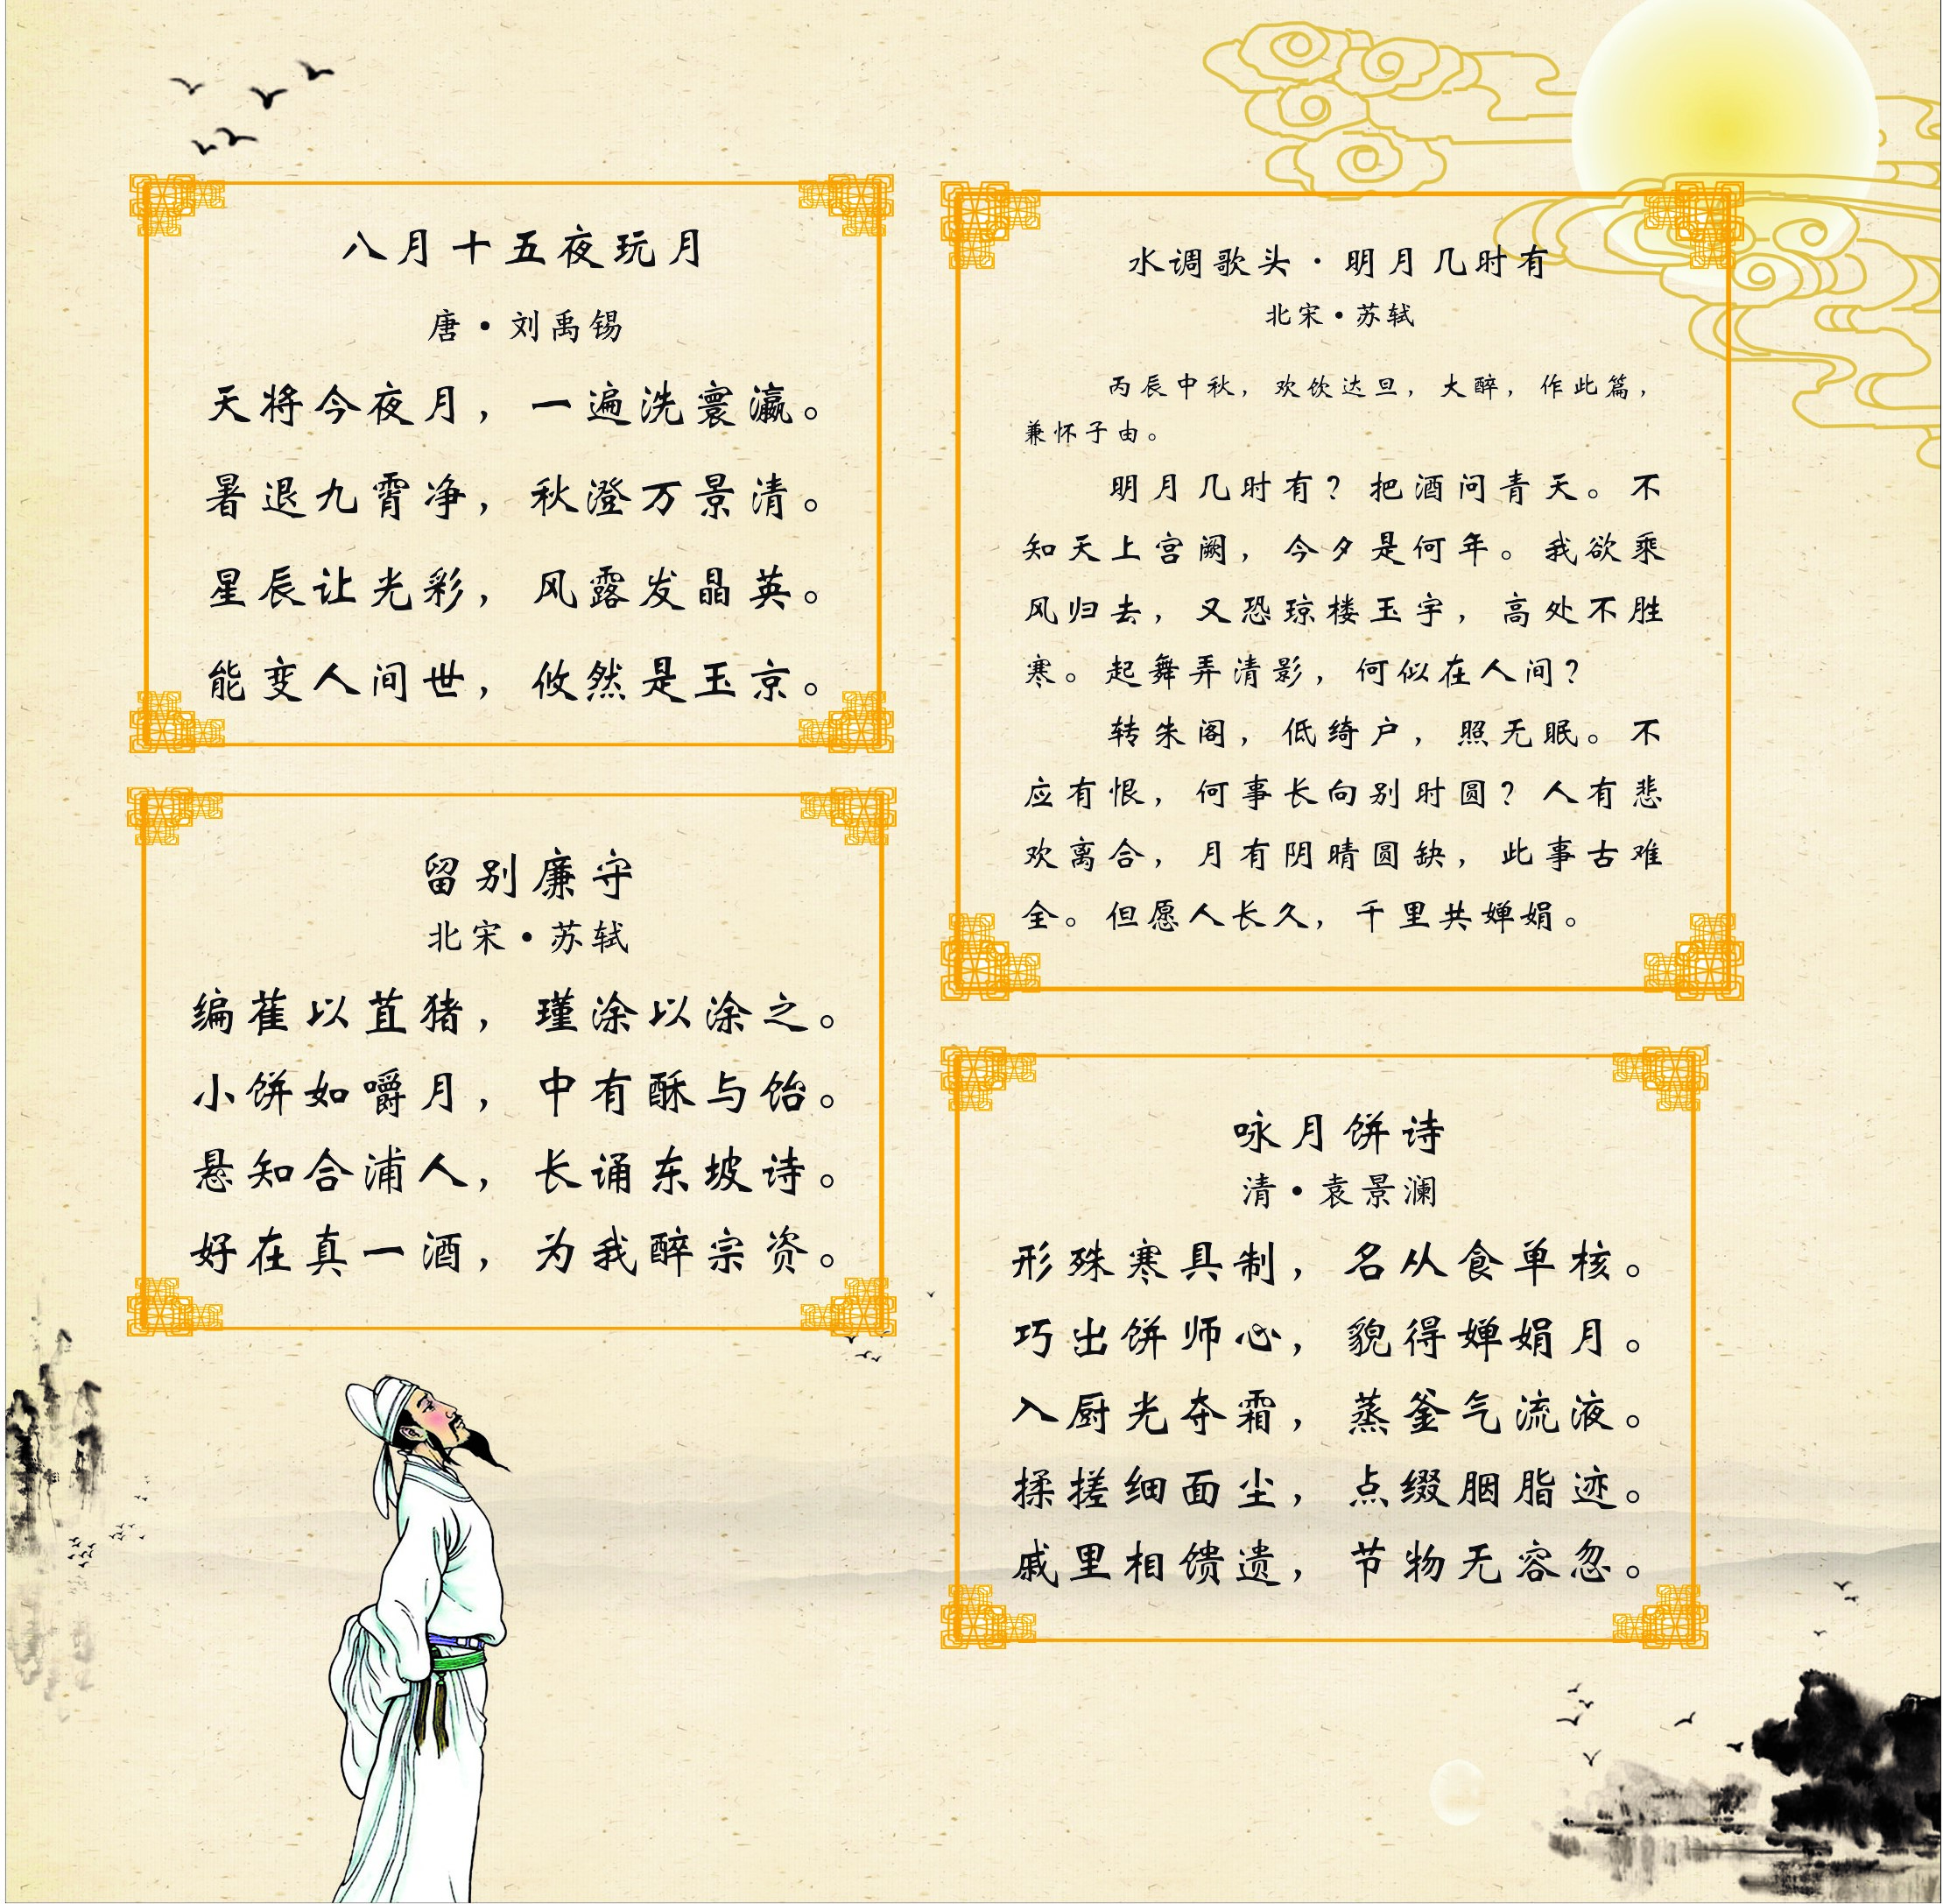 八月十五夜玩月
唐·刘禹锡
天将今夜月，一遍洗寰瀛。
暑退九霄净，秋澄万景清。
星辰让光彩，风露发晶英。
能变人间世，攸然是玉京。
留别廉守
北宋·苏轼
编萑以苴猪，瑾涂以涂之。
小饼如嚼月，中有酥与饴。
悬知合浦人，长诵东坡诗。
好在真一酒，为我醉宗资。
水调歌头·明月几时有
北宋·苏轼
丙辰中秋，欢饮达旦，大醉，作此篇，
兼怀子由。
明月几时有？把酒问青天。不
知天上宫阙，今夕是何年。我欲乘
风归去，又恐琼楼玉宇，高处不胜
寒。起舞弄清影，何似在人间？
转朱阁，低绮户，照无眠。不
应有恨，何事长向别时圆？人有悲
欢离合，月有阴晴圆缺，此事古难
全。但愿人长久，千里共婵娟。
咏月饼诗
清·袁景澜
形殊寒具制，名从食单核。
巧出饼师心，貌得婵娟月。
入厨光夺霜，蒸釜气流液。
揉搓细面尘，点缀胭脂迹。
戚里相馈遗，节物无容忽。